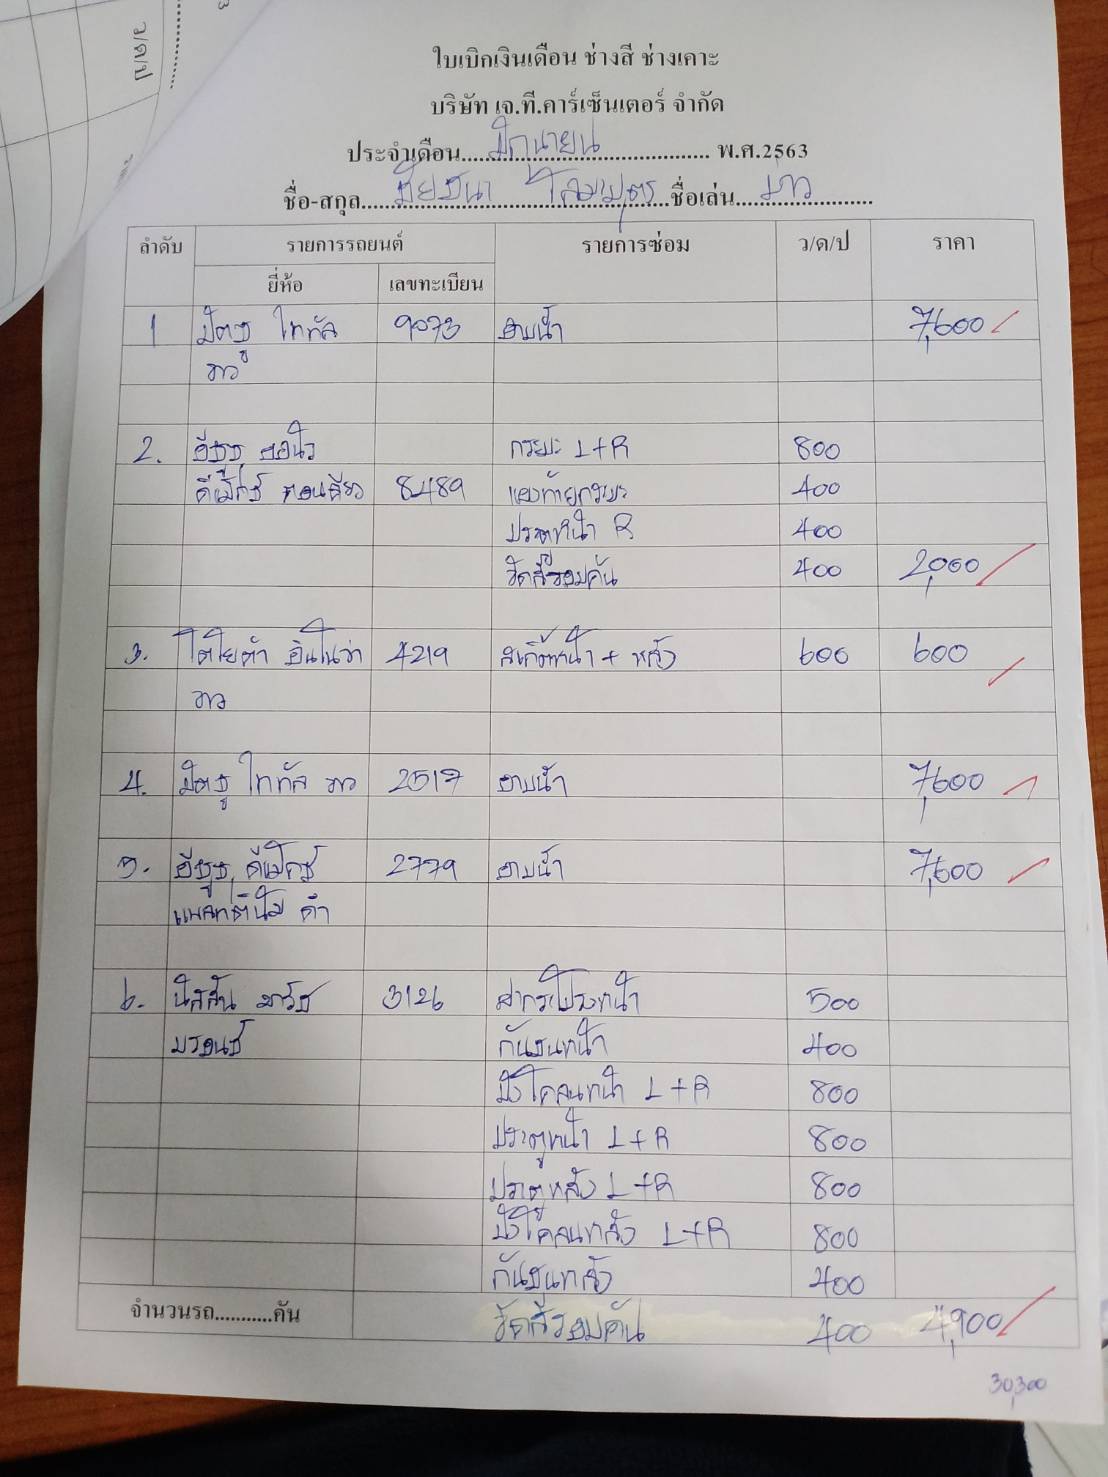 ว/ด/ป
ใบเบิกเงินเดือน ช่างสี ช่างเคาะ
บริษัท เจ.ที.คาร์เซ็นเตอร์ จำกัด
ประจำเดือน....มิถุนายน.................... พ.ศ.2563
ชื่อ-สกุล....ชัยชนา....................ชื่อเล่น....................
ลำดับ รายการรถยนต์ รายการซ่อม ว/ด/ป ราคา
ยี่ห้อ เลขทะเบียน
1 มิตซู ไททัล 9073 อาบน้ำ 7,600
ขาว
2. อีซูซุ ออนิว กระบะ L+R 800
ดีแม็กซ์ ตอนเดียว 8489 แผงท้ายกระบะ 400
ประตูหน้า R 400
ขัดสีรอบคัน 400 2,000
3. โตโยต้า อินโนว่า 4219 สเกิ๊ตหน้า + หลัง 600 600
ขาว
4. มิตซู ไททัล ขาว 2517 อาบน้ำ 7,600
5. อีซูซุ ดีแม็กซ์ 2779 อาบน้ำ 7,600
แพลทตินั่ม ดำ
6. นิสสัน มาร์ช 3126 ฝากระโปรงหน้า 500
บรอนซ์ กันชนหน้า 400
บังโคลนหน้า L+R 800
ประตูหน้า L+R 800
ประตูหลัง L+R 800
บังโคลนหลัง L+R 800
กันชนหลัง 400
จำนวนรถ...........คัน ขัดสีรอบคัน 400 4,900
30,300